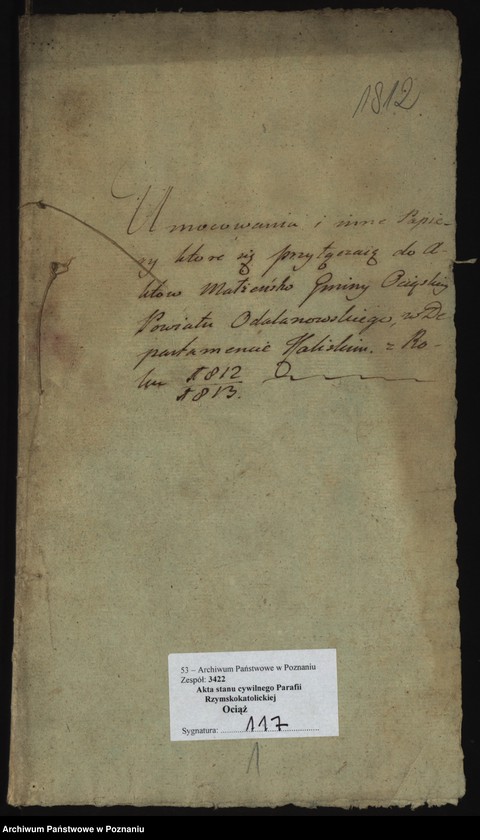 1812
Umocowania i inne Papie-
ry które się przyłączaią do A-
któw Małżeńsko Gminy Ociąskiey
Powiatu Odalanowskiego, w De
partamencie Kaliskim. z Ro-
ku 1812
1813.
53 – Archiwum Państwowe w Poznaniu
Zespół: 3422
Akta stanu cywilnego Parafii
Rzymskokatolickiej
Ociąż
Sygnatura: 117
1
Archiwum Państwowe w Poznaniu
Archiwum Państwowe w Poznaniu